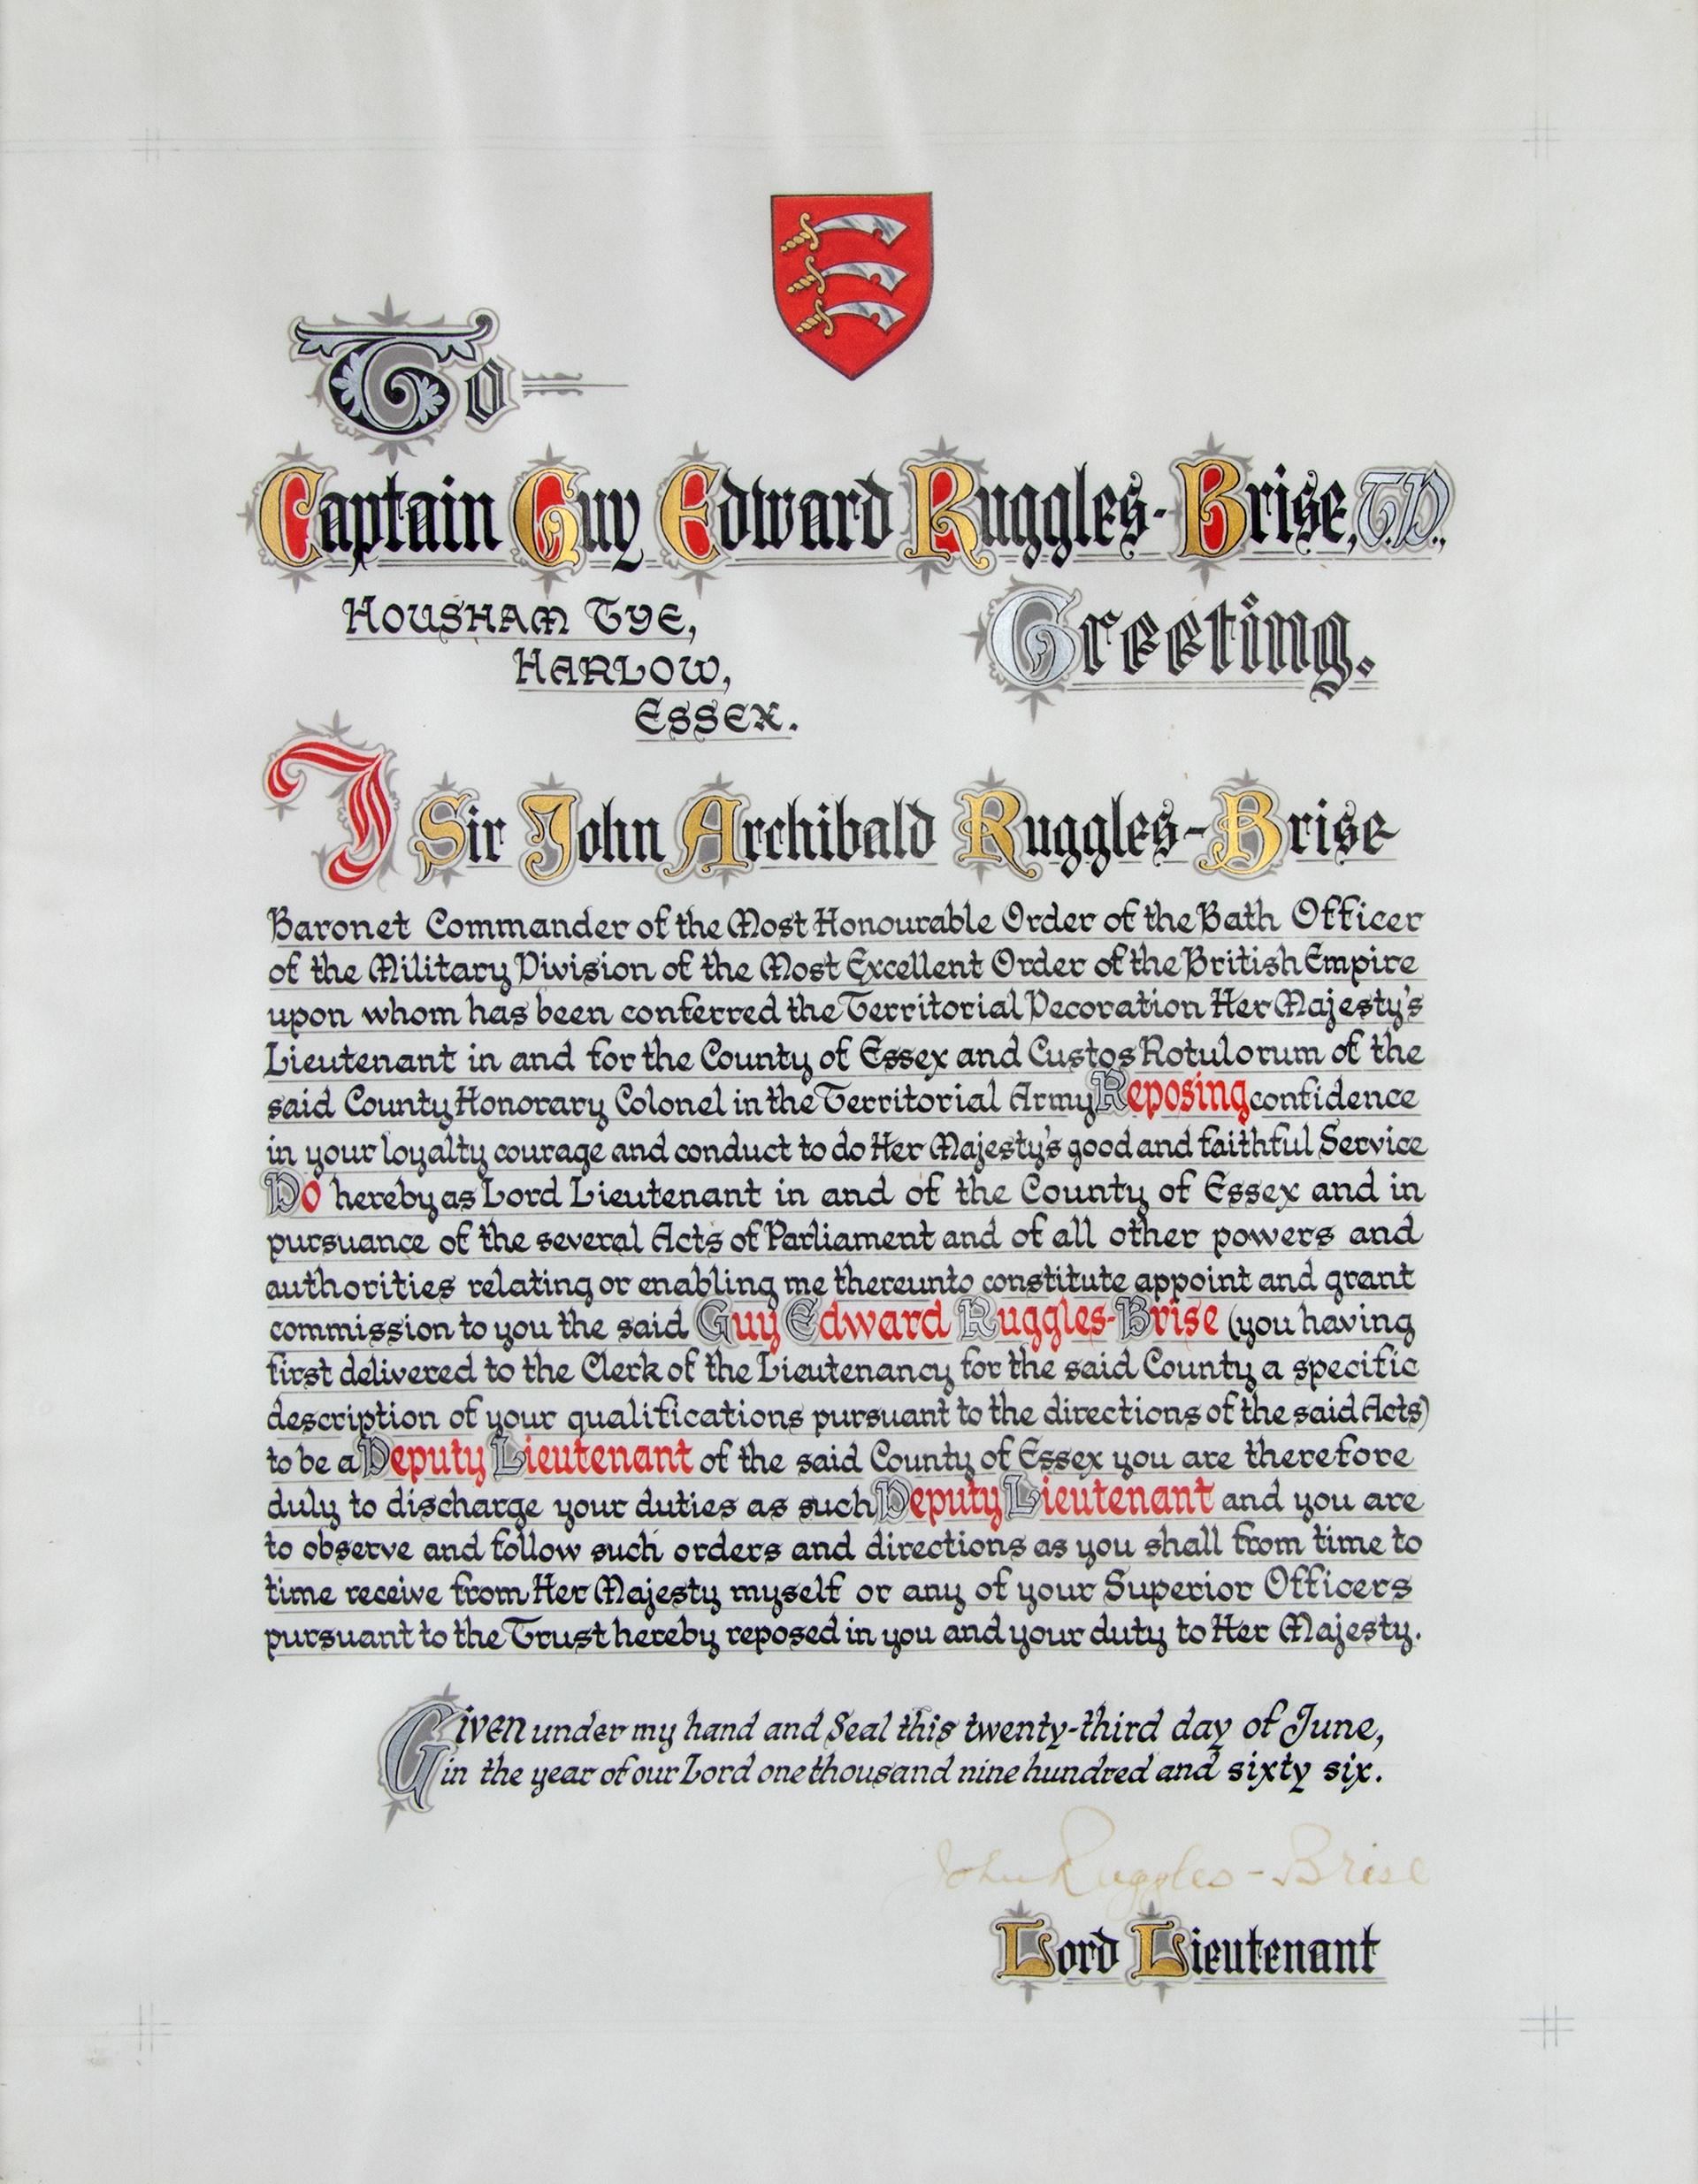 To
Captain Guy Edward Ruggles-Brise, T.D.,
Housham Tye,
Greeting.
Harlow,
Essex.
I Sir John Archibald Ruggles-Brise
Baronet Commander of the Most Honourable Order of the Bath Officer
of the Military Division of the Most Excellent Order of the British Empire
upon whom has been conferred the Territorial Decoration Her Majesty's
Lieutenant in and for the County of Essex and Custos Rotulorum of the
said County Honorary Colonel in the Territorial Army Reposing confidence
in your loyalty courage and conduct to do Her Majesty's good and faithful Service
Do hereby as Lord Lieutenant in and of the County of Essex and in
pursuance of the several Acts of Parliament and of all other powers and
authorities relating or enabling me thereunto constitute appoint and grant
commission to you the said Guy Edward Ruggles-Brise (you having
first delivered to the Clerk of the Lieutenancy for the said County a specific
description of your qualifications pursuant to the directions of the said Acts)
to be a Deputy Lieutenant of the said County of Essex you are therefore
duly to discharge your duties as such Deputy Lieutenant and you are
to observe and follow such orders and directions as you shall from time to
time receive from Her Majesty myself or any of your Superior Officers
pursuant to the Trust hereby reposed in you and your duty to Her Majesty.
Given under my hand and Seal this twenty-third day of June,
in the year of our Lord one thousand nine hundred and sixty six.
John Ruggles-Brise
Lord Lieutenant